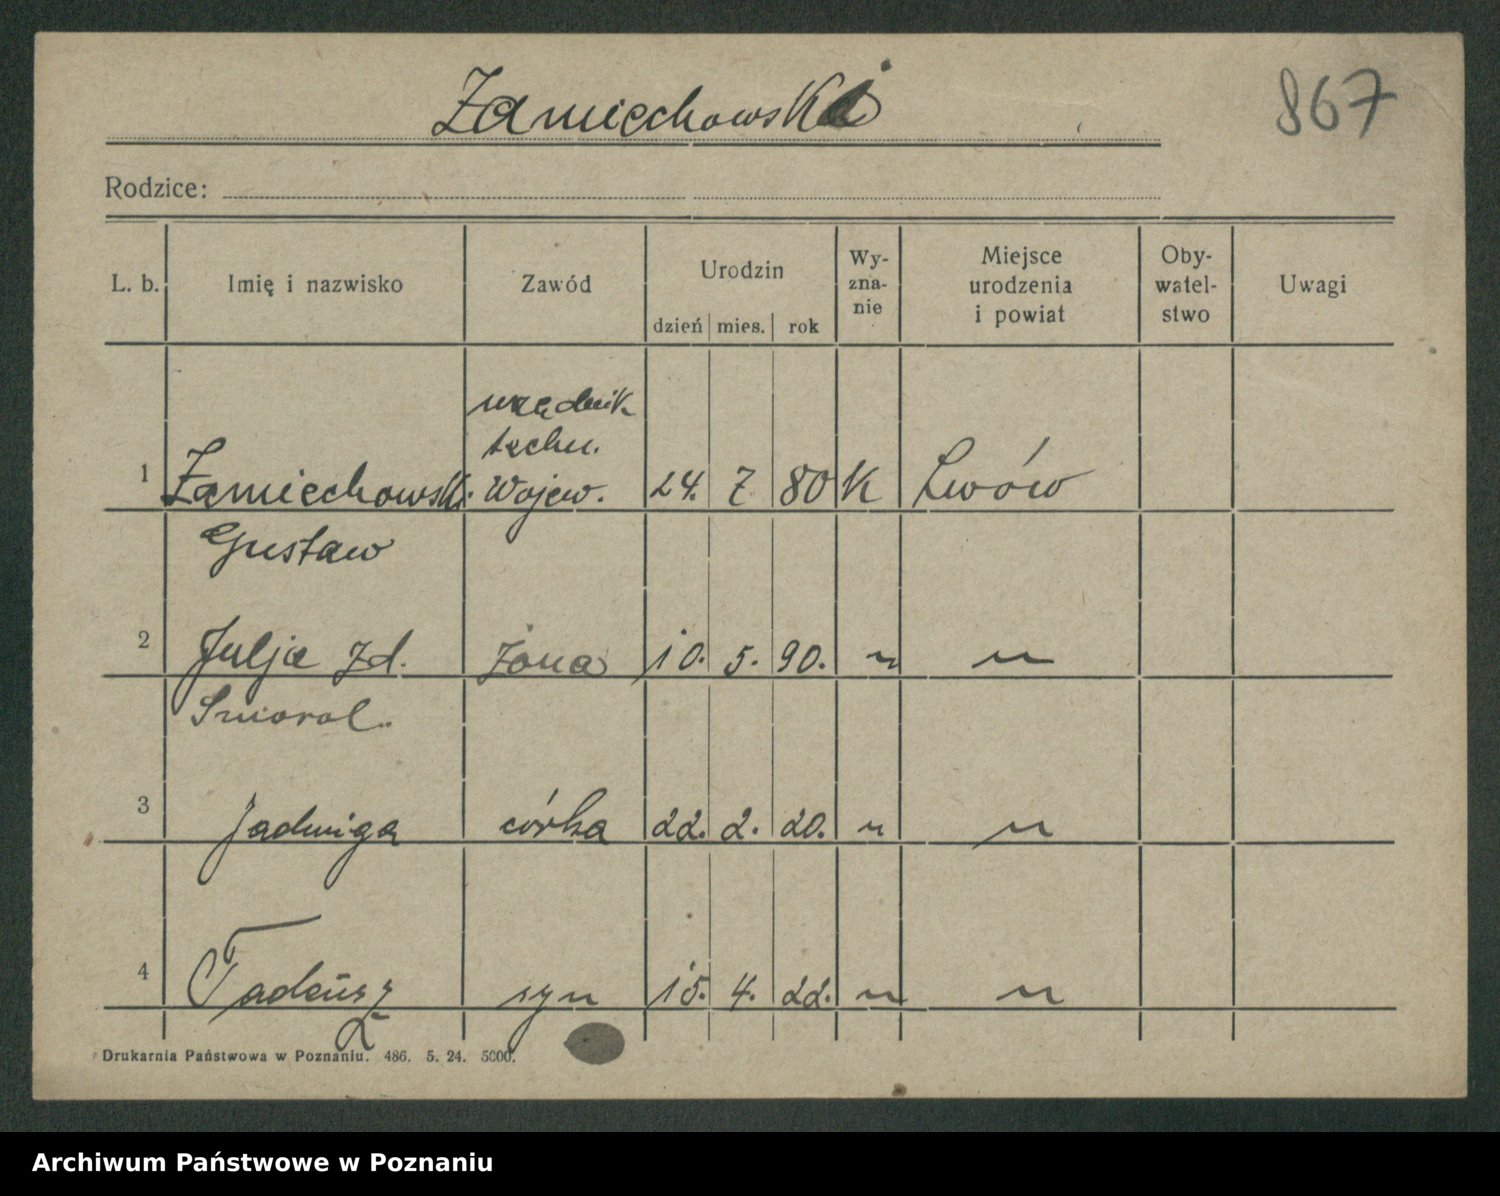 Zamiechowski
867
Rodzice:
L. b. Imię i nazwisko Zawód Urodzin dzień mies. rok Wy-zna-nie Miejsce urodzenia i powiat Oby-watel-stwo Uwagi
urzędnik
techn.
1 Zamiechowski Wojew. 24. 7 80 K Lwów
Gustaw
2 Julja zd. żona 10. 5. 90. " "
Smoral.
3 Jadwiga córka 22. 2. 20. " "
4 Tadeusz syn 15. 4. 22. " "
Drukarnia Państwowa w Poznaniu. 486. 5. 24. 5000.
Archiwum Państwowe w Poznaniu